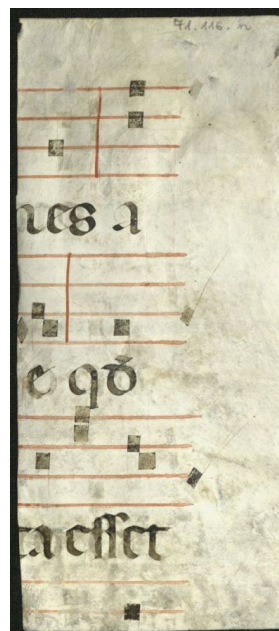 71.116.n
nes a
e qđ
ta esset